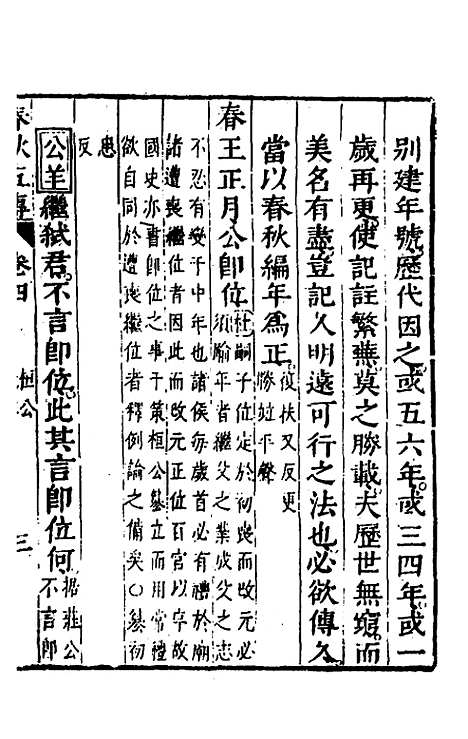 別建年號歷代因之或五六年或三四年或一
歲再更使記註繁蕪莫之勝載夫歷世無窮而
美名有盡豈記久明遠可行之法也必欲傳久
當以春秋編年爲正復扶又反更
勝並平聲
春王正月公卽位杜嗣子位定於初喪而改元必
須踰年者繼父之業成父之志
不忍有變于中年也諸侯每歲首必有禮於廟
諸遭喪繼位者因此而改元正位百官以序故
國史亦書卽位之事于策桓公簒立而用常禮
欲自同於遭喪繼位者釋例論之備矣○簒初
患
反
公羊繼弑君不言卽位此其言卽位何據莊公
不言卽
春秋五傳 卷四 桓公 三